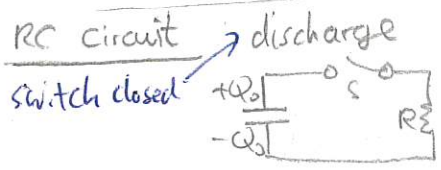 RC Circuit discharge
switch closed
+Q₀
S
R
-Q₀